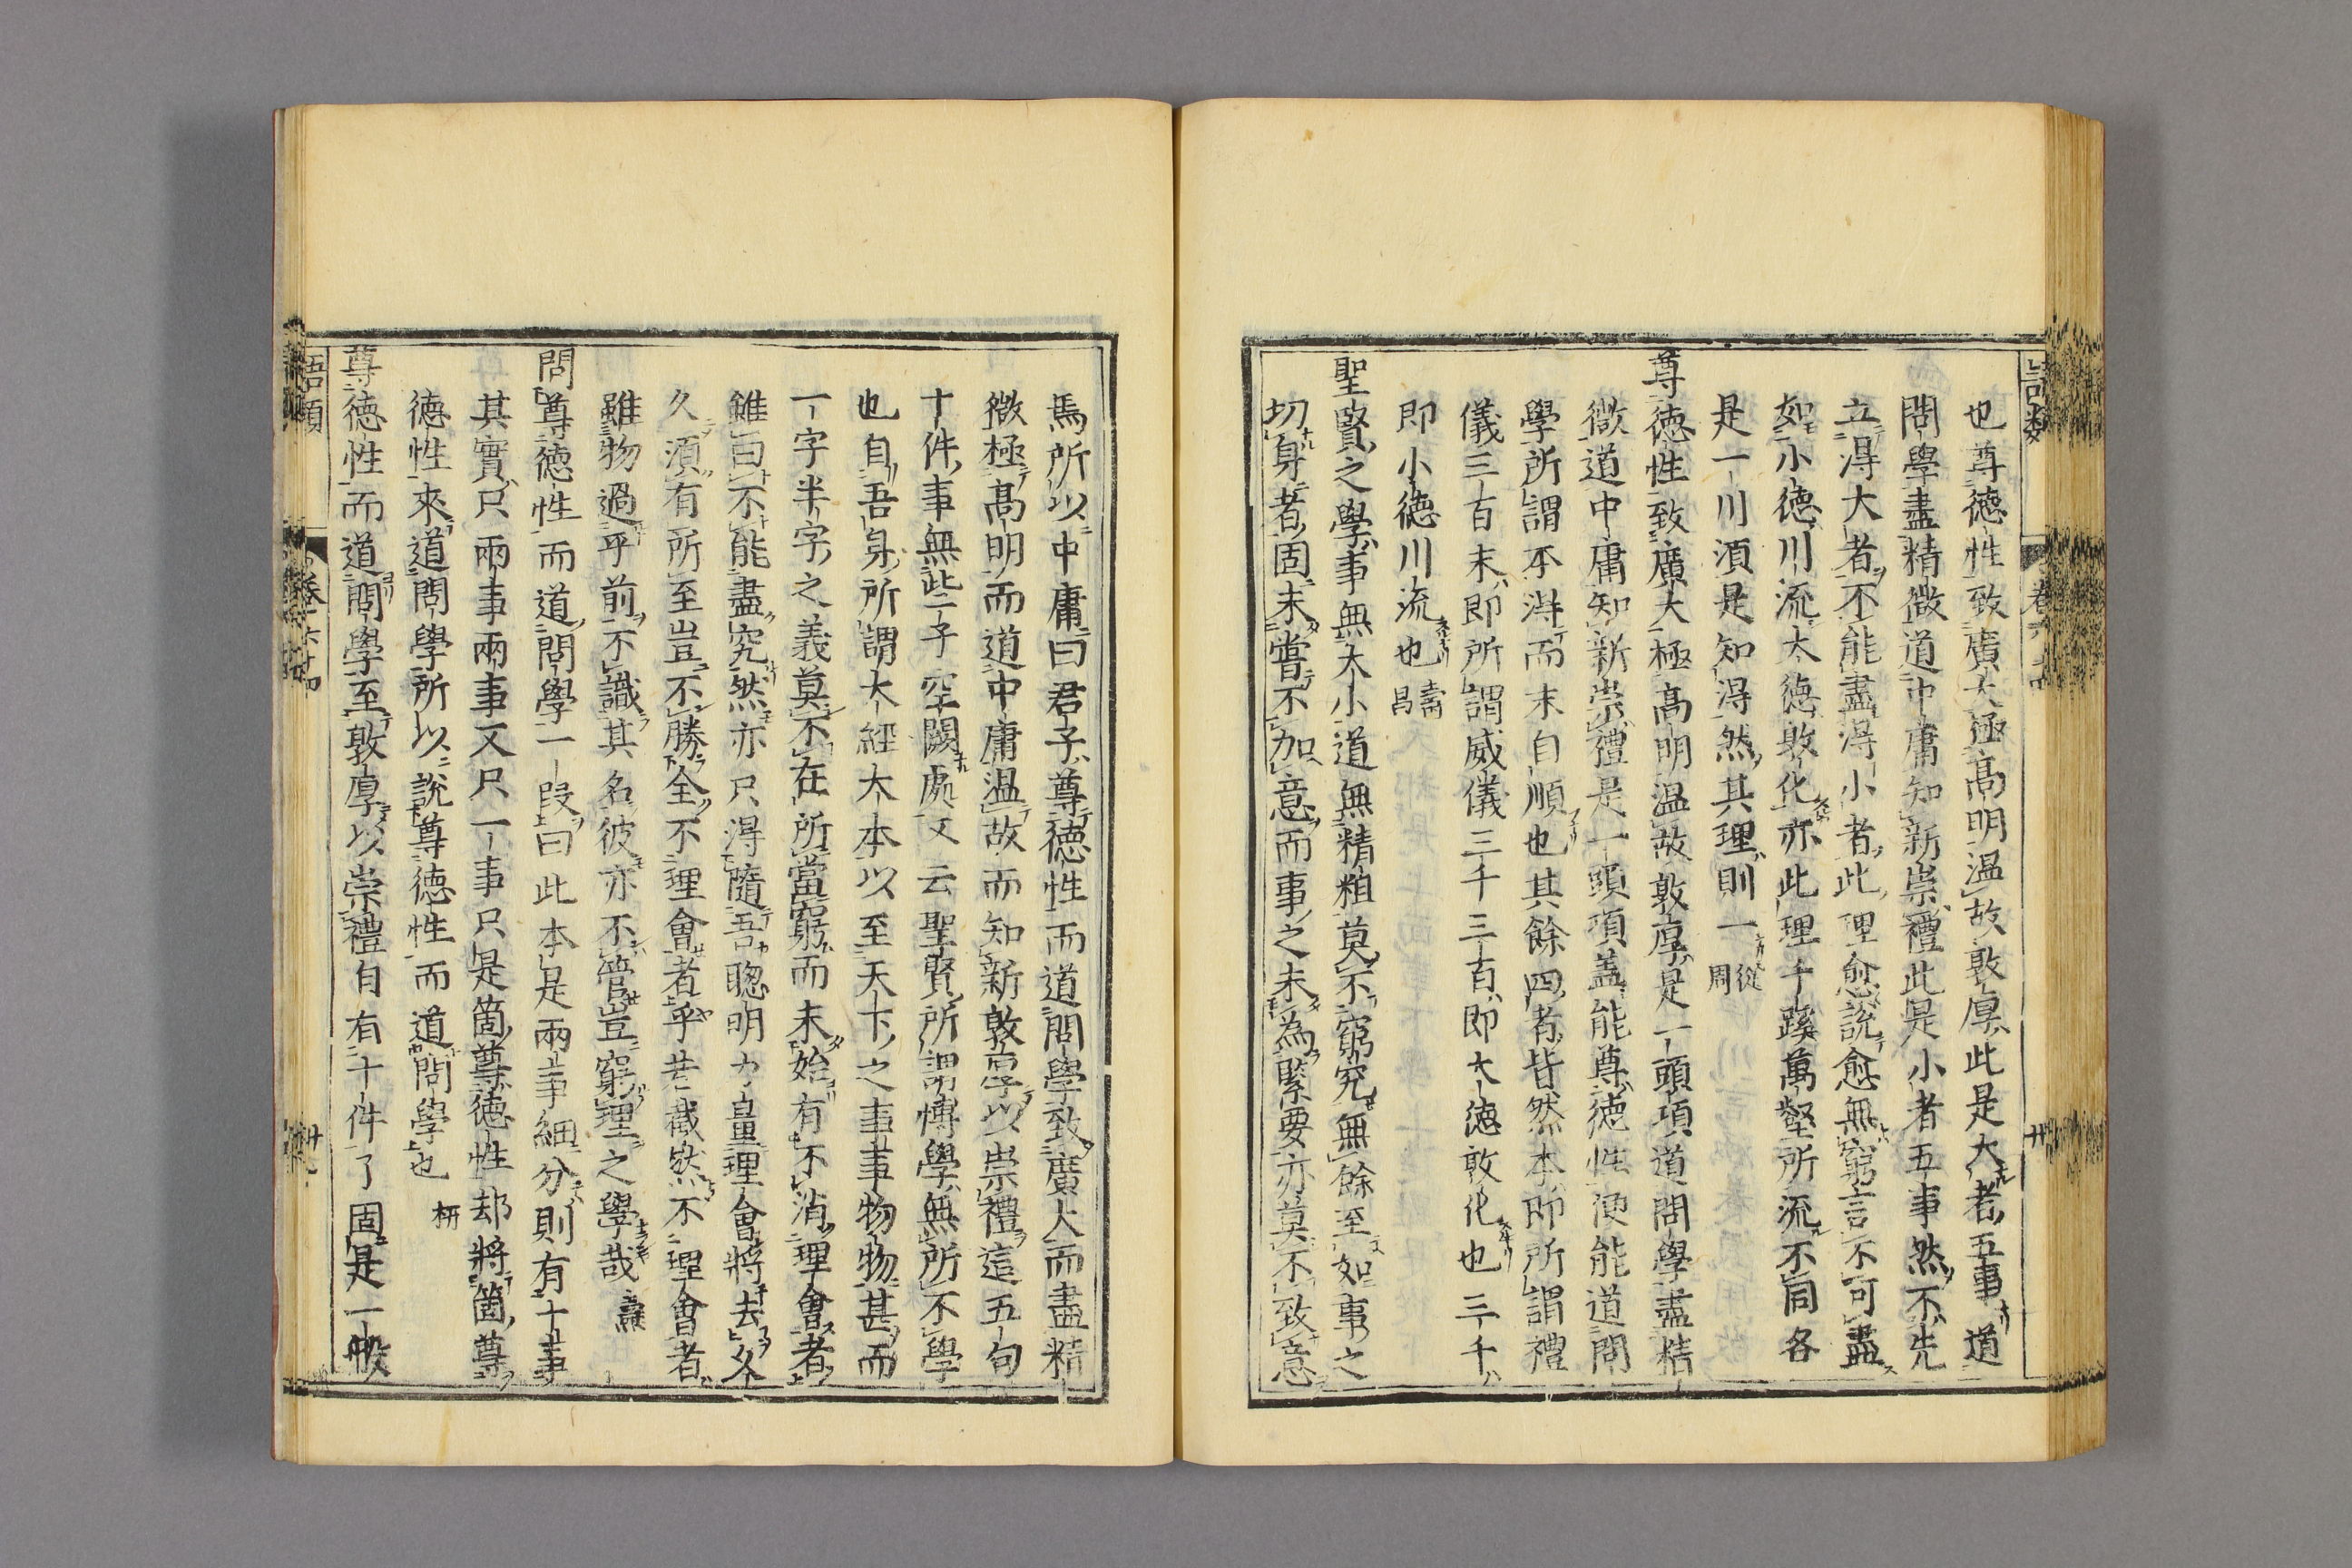 也尊德性致廣大極高明溫故敦厚此是大者五事道
問學盡精微道中庸知新崇禮此是小者五事然不先
立得大者不能盡得小者此理愈說愈無窮言不可盡
如小德川流大德敦化亦此理千蹊萬壑所流不同各
是一川須是知得然其理則一 從周
尊德性致廣大極高明溫故敦厚是一頭項道問學盡精
微道中庸知新崇禮是一頭項蓋能尊德性便能道問
學所謂本得而末自順也其餘四者皆然本即所謂禮
儀三百末即所謂威儀三千三百即大德敦化也三千
即小德川流也 壽昌
聖賢之學事無大小道無精粗莫不窮究無餘至如事之
切身者固未嘗不加意而事之未為緊要亦莫不致意
焉所以中庸曰君子尊德性而道問學致廣大而盡精
微極高明而道中庸溫故而知新敦厚以崇禮這五句
十件事無些子空闕處又云聖賢所謂博學無所不學
也自吾身所謂大經大本以至天下之事事物物甚而
一字半字之義莫不在所當窮而未始有不消理會者
雖曰不能盡究然亦只得隨吾聰明力量理會將去久
久須有所至豈不勝全不理會者乎若截然不理會者
雖物過乎前不識其名彼亦不管豈窮理之學哉
問尊德性而道問學一段曰此本是兩事細分則有十事
其實只兩事兩事又只一事只是箇尊德性却將箇尊
德性來道問學所以說尊德性而道問學也
尊德性而道問學至敦厚以崇禮自有十件了固是一般